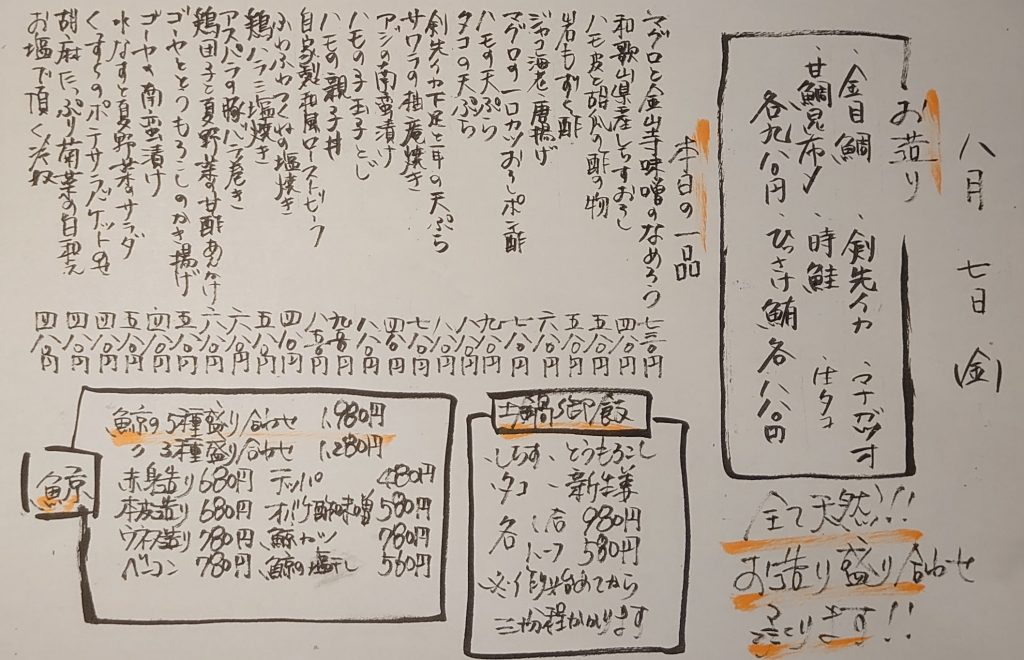 八月 七日 (金)
お造り
・金目鯛 ・剣先イカ ・マナガツオ
・甘鯛昆布〆 ・時鮭 ・生タコ
各九八〇円 ひっさげ鮪 各八八〇円
全て天然!!
お造り盛り合わせ
承ります!!
本日の一品
マグロと金山寺味噌のなめろう 七三〇円
和歌山県産しらすおろし 四八〇円
ハモ皮と胡瓜の酢の物 五八〇円
岩もずく酢 五八〇円
ジャコ海老唐揚げ 六八〇円
マグロの一口カツおろしポン酢 七八〇円
ハモの天ぷら 九八〇円
タコの天ぷら 八八〇円
剣先イカ下足と耳の天ぷら 八八〇円
サワラの柚庵焼き 七八〇円
アジの南蛮漬け 四八〇円
ハモの子玉子とじ 八八〇円
ハモの親子丼 九八〇円
自家製和風ローストビーフ 八五〇円
ふわふわつくねの塩焼き 四八〇円
鶏ハラミ塩焼き 五八〇円
アスパラの豚バラ巻き 六八〇円
鶏団子と夏野菜の甘酢あんかけ 六八〇円
ゴーヤととうもろこしのかき揚げ 五八〇円
ゴーヤの南蛮漬け 四八〇円
水なすと夏野菜のサラダ 五八〇円
くずしのポテサラバゲットのせ 四八〇円
胡麻たっぷり菊菜の白和え 四八〇円
お塩で頂く 四八〇円
土鍋御飯
・しらす ・とうもろこし
・タコ ・新生姜
各 一合 980円
ハーフ 580円
三十分程かかります
鯨
鯨の5種盛り合わせ 1,980円
〃 3種盛り合わせ 1,280円
赤身造り 680円 テッパ 480円
本皮造り 680円 オバケ酢味噌 580円
ウネス造り 780円 鯨カツ 780円
ベーコン 780円 鯨の塩干し 560円